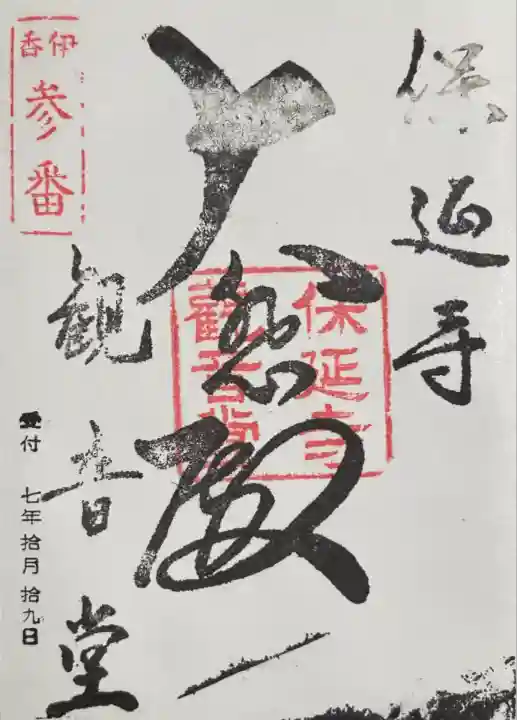 保延寺
大悲殿
観音堂
保延寺
観音堂
伊香
参番
受付 七年拾月拾九日